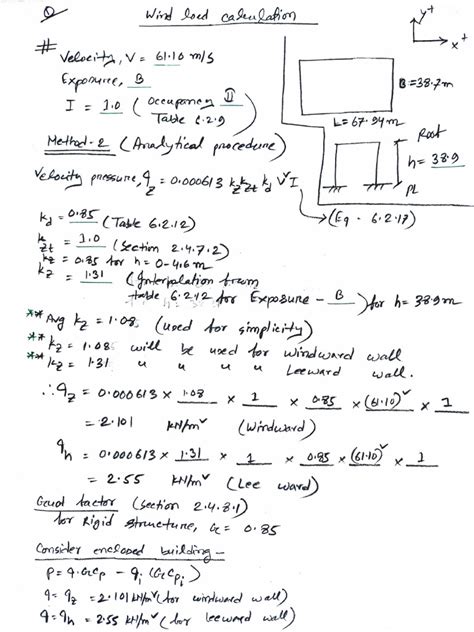 Wind load calculation
# Velocity, V = 61.10 m/s
Exposure, B
I = 1.0 (Occupancy II
Table 6.2.9)
Method-2 (Analytical procedure)
Velocity pressure, q_z = 0.000613 k_z k_zt k_d V² I
→ (Eq. 6.2.17)
y+
x+
B = 38.7m
L = 67.94m
Roof
h = 38.9
PL
k_d = 0.85 (Table 6.2.12)
k_zt = 1.0 (Section 2.4.7.2)
k_z = 0.85 for h = 0-4.6m
k_z = 1.31 (Interpolation from
table 6.2.12 for Exposure - B) for h = 38.9m
** Avg k_z = 1.08, (used for simplicity)
** k_z = 1.08 will be used for windward wall
** k_z = 1.31 " " " " Leeward wall.
∴ q_z = 0.000613 × 1.08 × 1 × 0.85 × (61.10)² × 1
= 2.101 KN/m² (Windward)
q_h = 0.000613 × 1.31 × 1 × 0.85 × (61.10)² × 1
= 2.55 KN/m² (Lee ward)
Gust factor (section 2.4.8.1)
for Rigid structure, G = 0.85
Consider enclosed building -
P = q.GCp - q_i (GCp_i)
q = q_z = 2.101 KN/m² (for windward wall)
q = q_h = 2.55 KN/m² (for leeward wall)